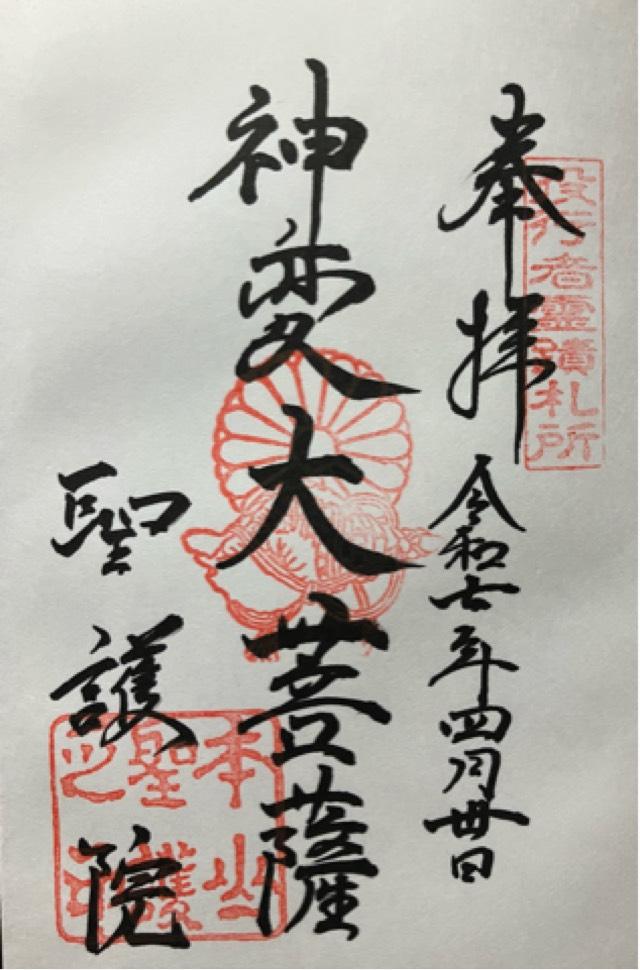 奉拝
役行者霊蹟札所
令和七年四月卅日
神変大菩薩
聖護院
本山
聖護
之印